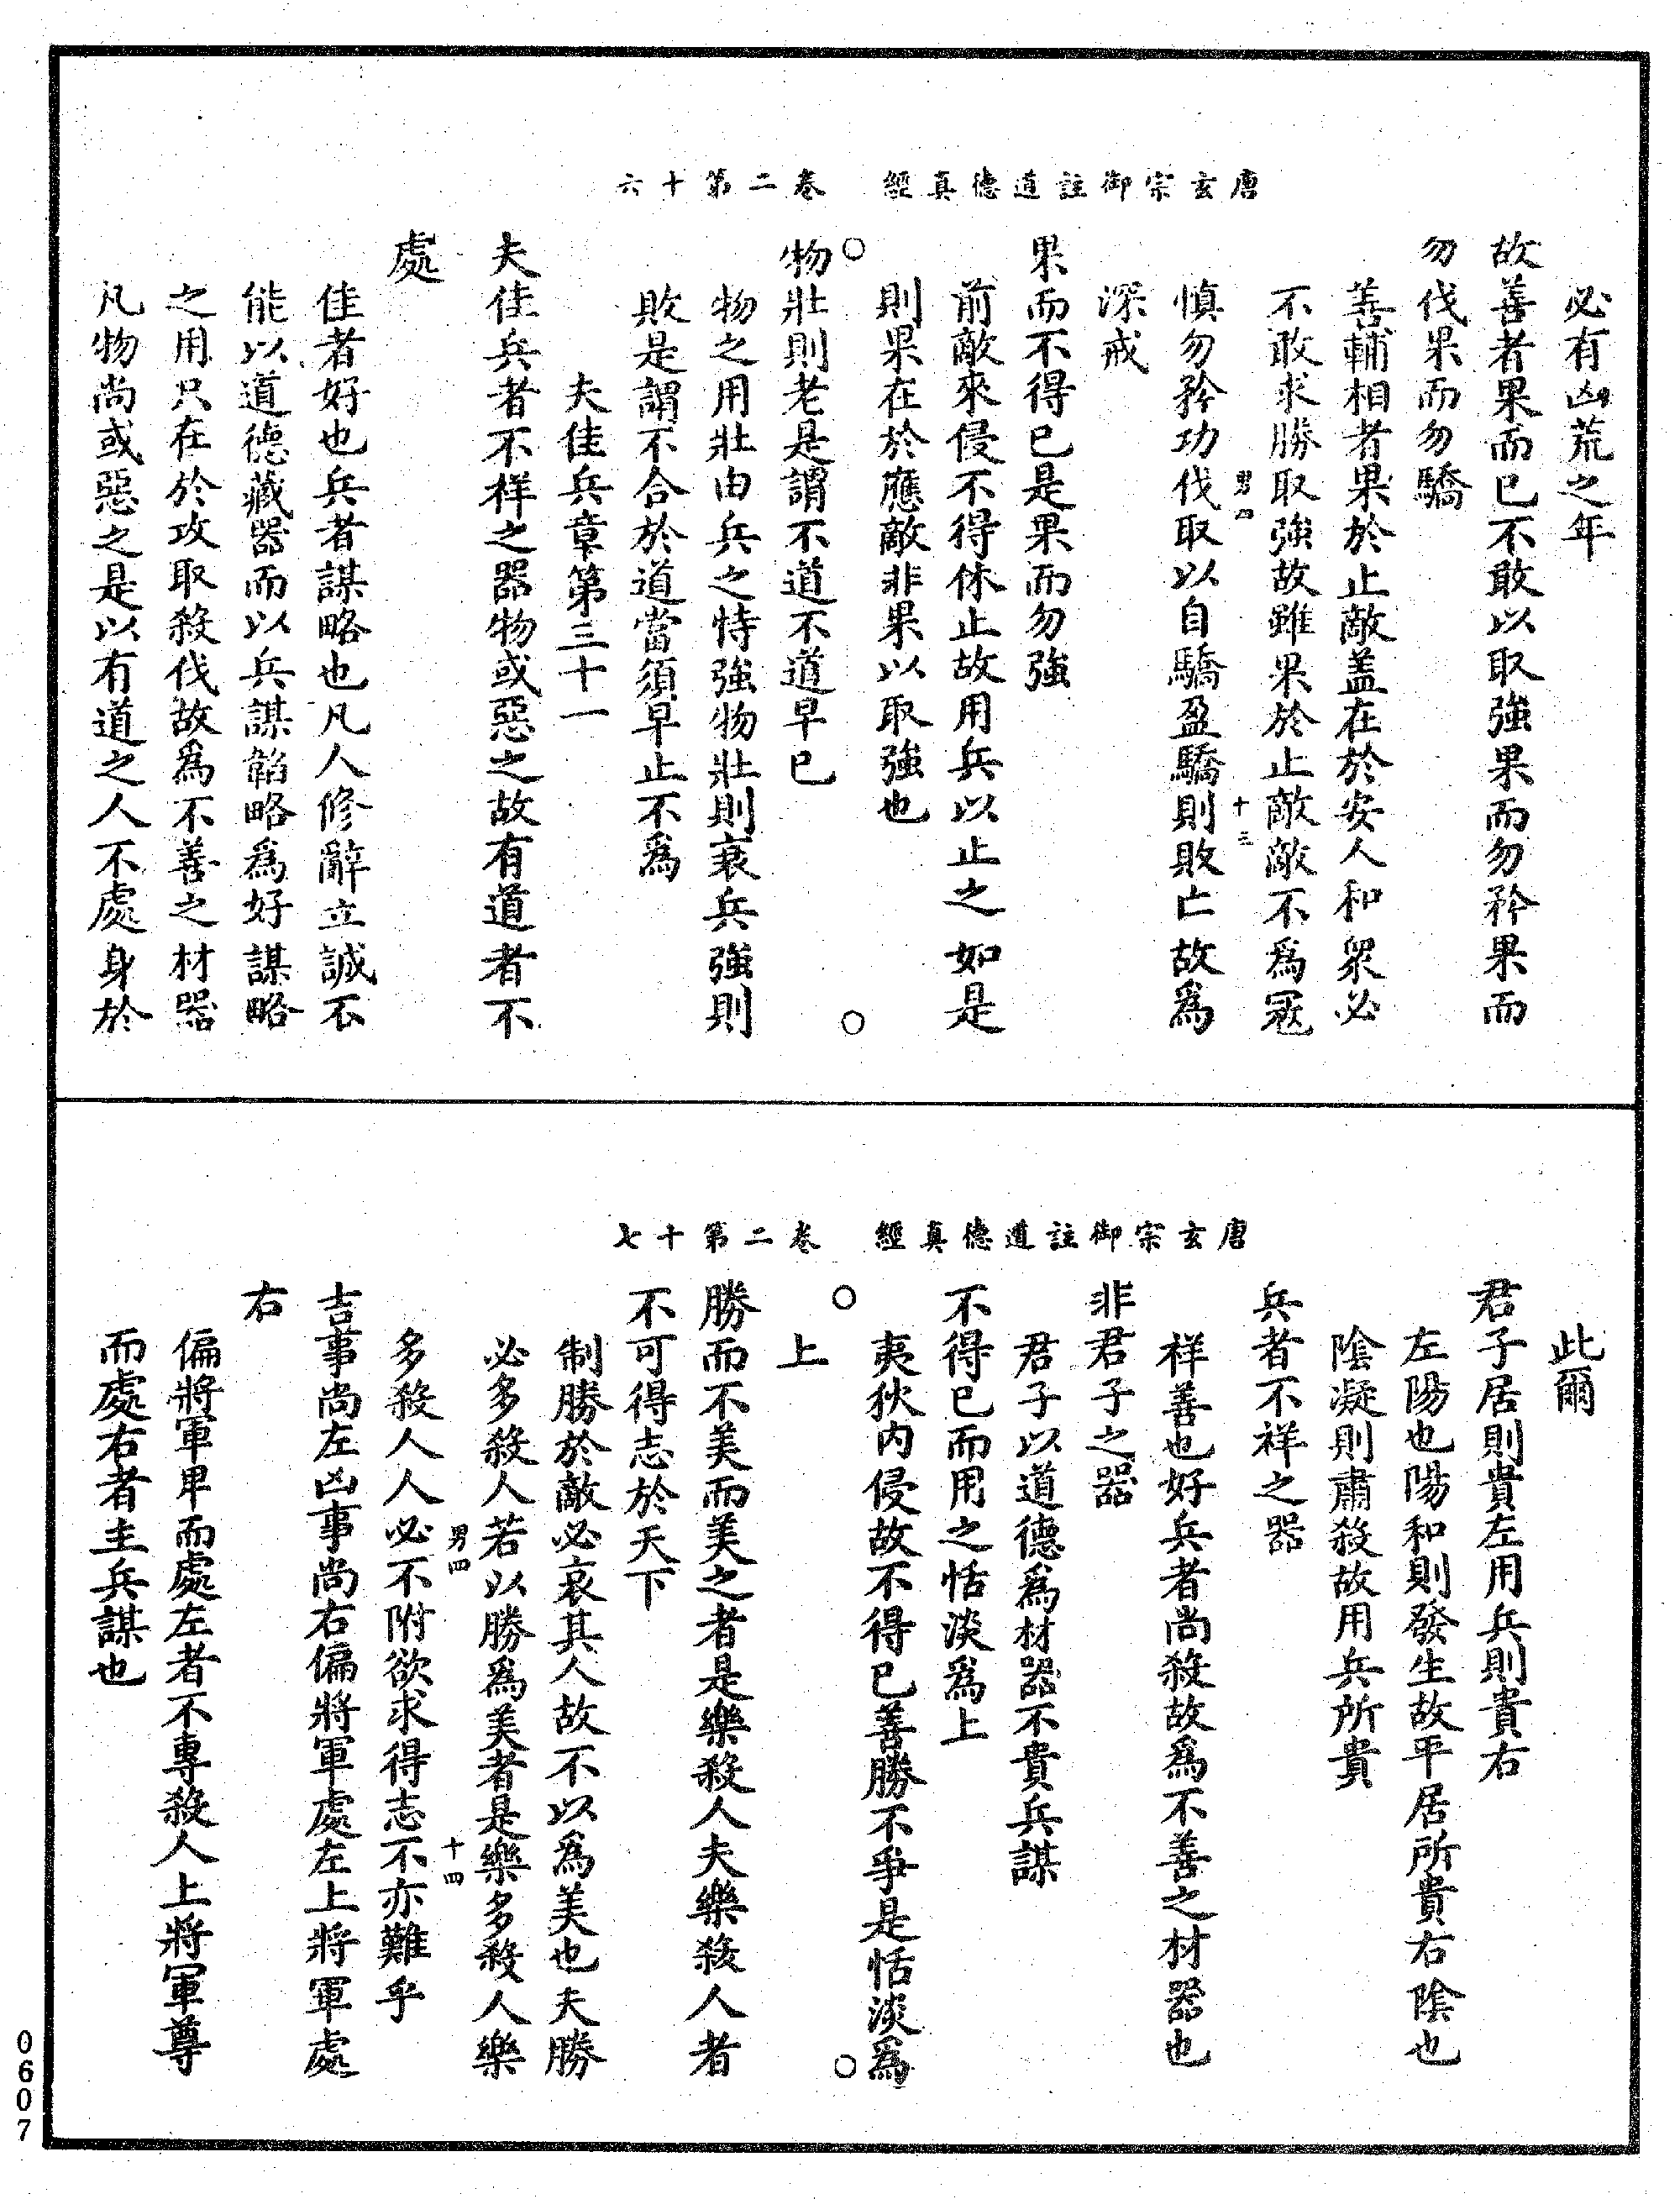 唐玄宗御註道德真經　卷二第十六
必有凶荒之年
故善者果而已不敢以取強果而勿矜果而
勿伐果而勿驕
善輔相者果於止敵盖在於安人和衆必
不敢求勝取強故雖果於止敵敵不爲冦
男四　十三
慎勿矜功伐取以自驕盈驕則敗亡故爲
深戒
果而不得已是果而勿強
前敵來侵不得休止故用兵以止之如是
則果在於應敵非果以取強也
物壯則老是謂不道不道早已
物之用壯由兵之恃強物壯則衰兵強則
敗是謂不合於道當須早止不爲
夫佳兵章第三十一
夫佳兵者不祥之器物或惡之故有道者不
處
佳者好也兵者謀略也凡人修辭立誠不
能以道德藏器而以兵謀韜略爲好謀略
之用只在於攻取殺伐故爲不善之材器
凡物尚或惡之是以有道之人不處身於
唐玄宗御註道德真經　卷二第十七
此爾
君子居則貴左用兵則貴右
左陽也陽和則發生故平居所貴右陰也
陰凝則肅殺故用兵所貴
兵者不祥之器
祥善也好兵者尚殺故爲不善之材器也
非君子之器
君子以道德爲材器不貴兵謀
不得已而用之恬淡爲上
夷狄内侵故不得已善勝不爭是恬淡爲
上
勝而不美而美之者是樂殺人夫樂殺人者
不可得志於天下
制勝於敵必哀其人故不以爲美也夫勝
必多殺人若以勝爲美者是樂多殺人樂
男四　十四
多殺人人必不附欲求得志不亦難乎
吉事尚左凶事尚右偏將軍處左上將軍處
右
偏將軍卑而處左者不專殺人上將軍尊
而處右者主兵謀也
0607